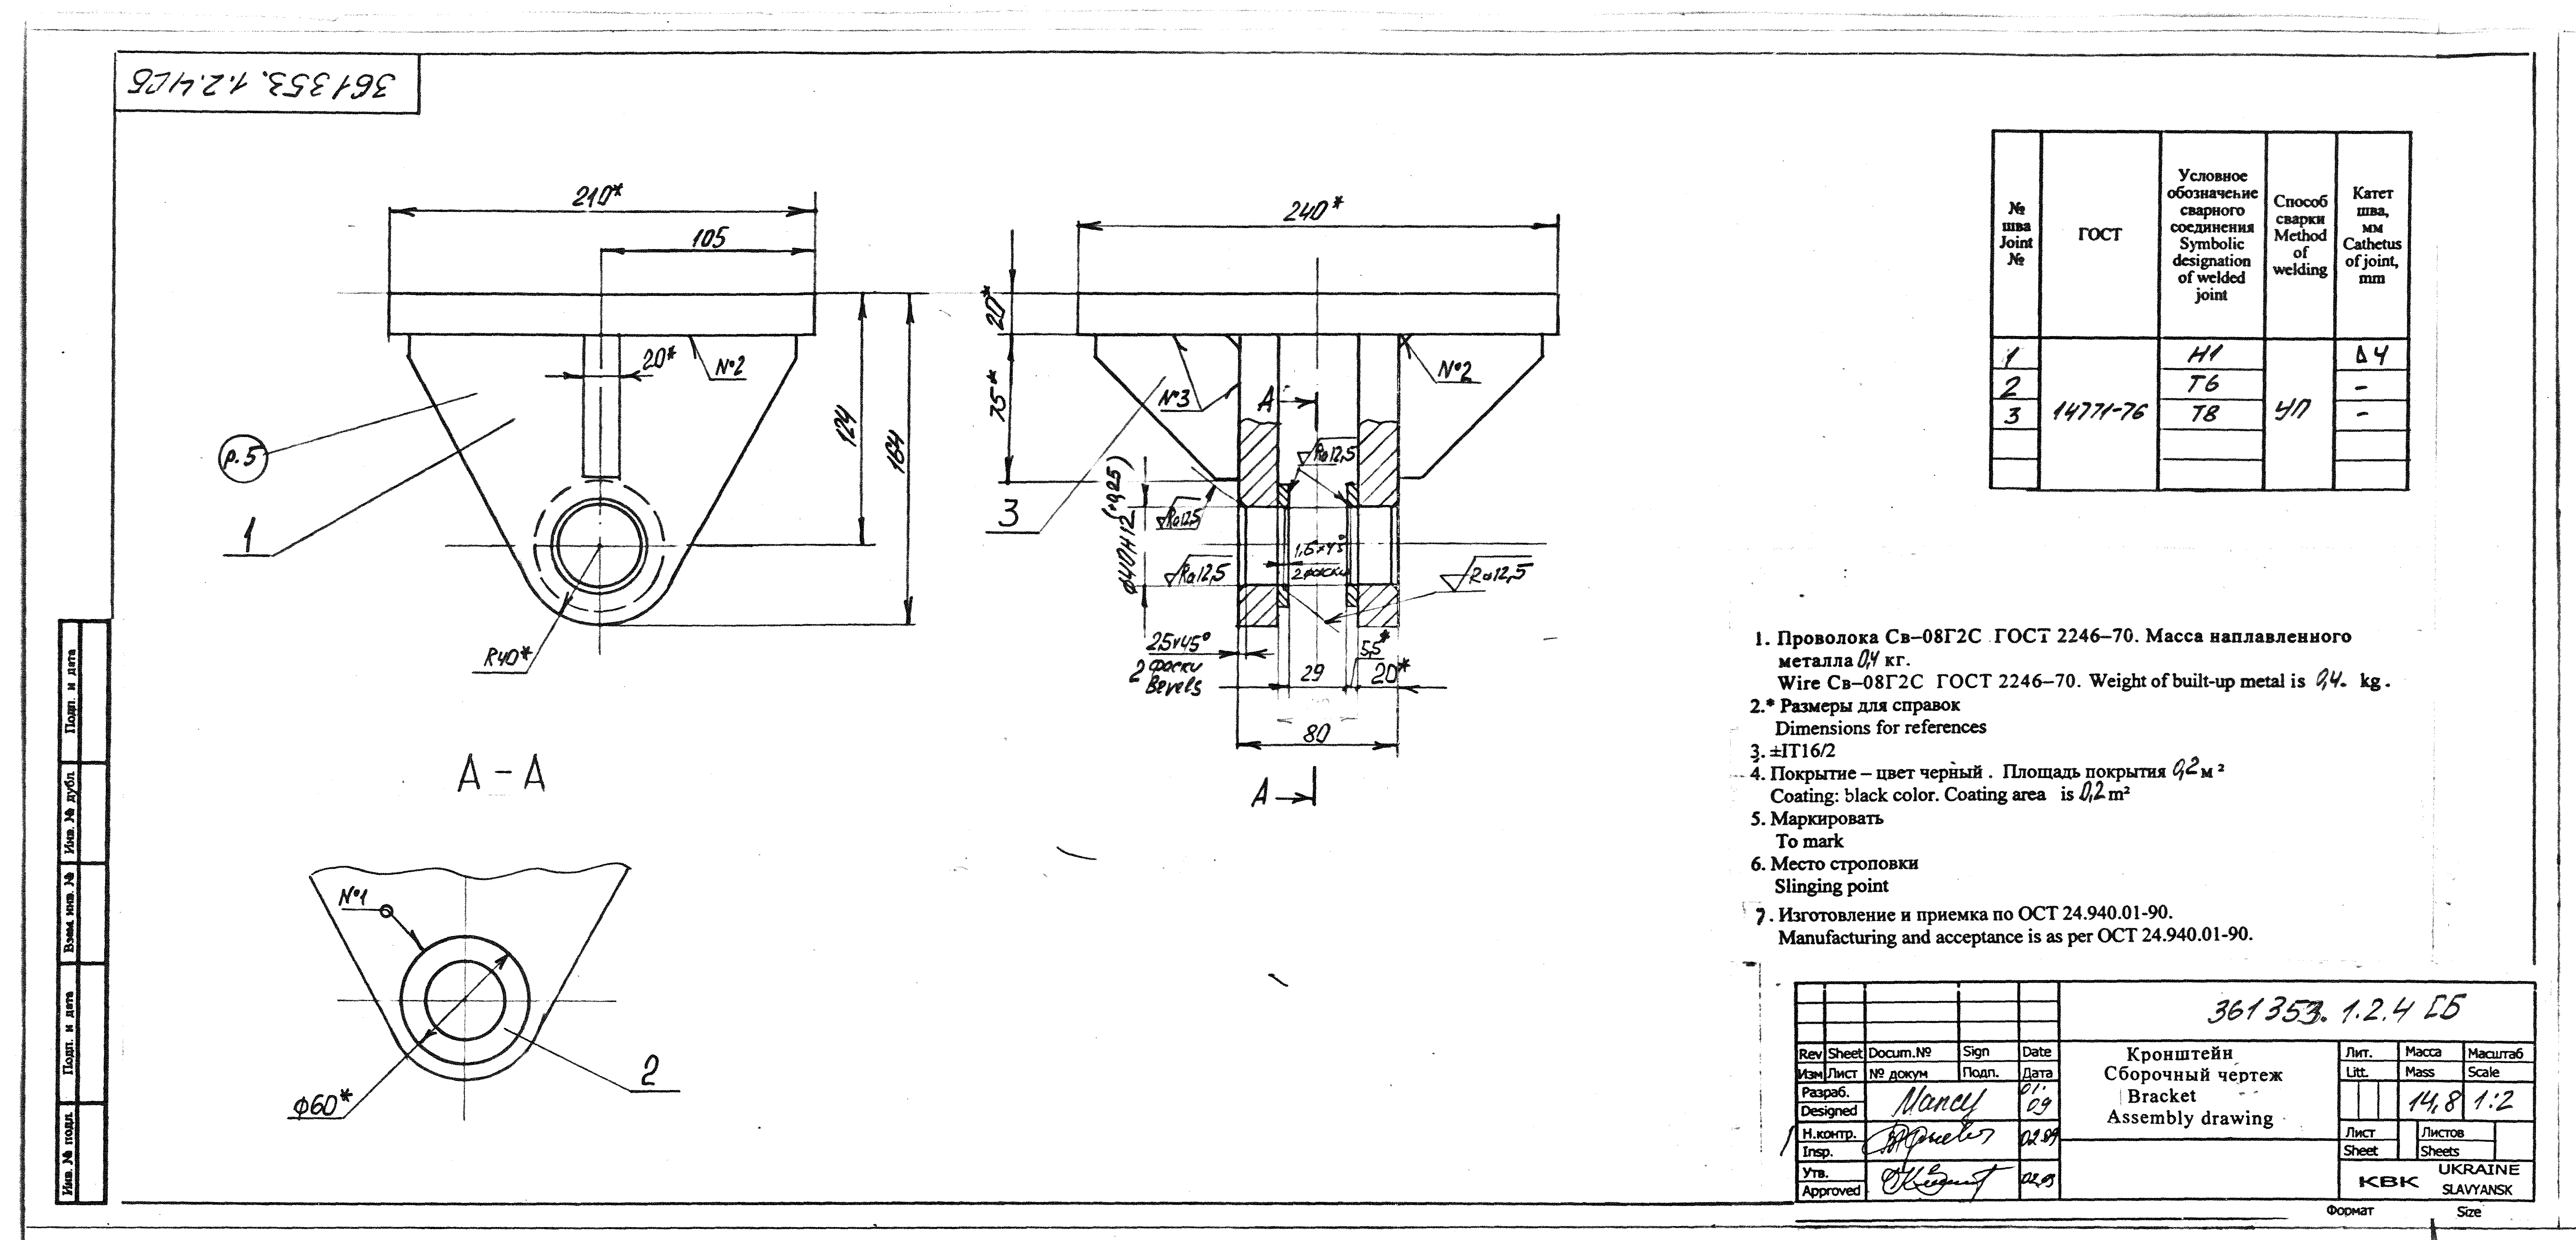 361353.1.2.4СБ
210*
105
20*
№2
124
164
р.5
1
R40*
240*
20*
75*
№3
№2
А
3
Ra12,5
Ra12,5
Ø40H12(+0,25)
Ra12,5
1,6×45°
2 фаски
Ra12,5
2,5×45°
2 фаски
Bevels
29
5,5*
20*
80
А
А - А
№1
2
Ø60*
№ шва Joint № | ГОСТ | Условное обозначение сварного соединения Symbolic designation of welded joint | Способ сварки Method of welding | Катет шва, мм Cathetus of joint, mm
1 | 14771-76 | Н1 | УП | Δ4
2 | Т6 | -
3 | Т8 | -
1. Проволока Св–08Г2С ГОСТ 2246–70. Масса наплавленного
металла 0,4 кг.
Wire Св–08Г2С ГОСТ 2246–70. Weight of built-up metal is 0,4. kg.
2.* Размеры для справок
Dimensions for references
3. ±IT16/2
4. Покрытие – цвет черный . Площадь покрытия 0,2 м²
Coating: black color. Coating area is 0,2 m²
5. Маркировать
To mark
6. Место строповки
Slinging point
7. Изготовление и приемка по ОСТ 24.940.01-90.
Manufacturing and acceptance is as per ОСТ 24.940.01-90.
361353.1.2.4 СБ
Rev Sheet Docum.№ Sign Date
Изм Лист № докум Подп. Дата
Разраб.
Designed
01.
09
Н.контр.
Insp.
02.09
Утв.
Approved
02.09
Кронштейн
Сборочный чертеж
Bracket
Assembly drawing
Лит. Масса Масштаб
Litt. Mass Scale
14,8 1:2
Лист Листов
Sheet Sheets
КВК
UKRAINE
SLAVYANSK
Формат Size
Подп. и дата
Инв. № дубл.
Взам. инв. №
Подп. и дата
Инв. № подл.